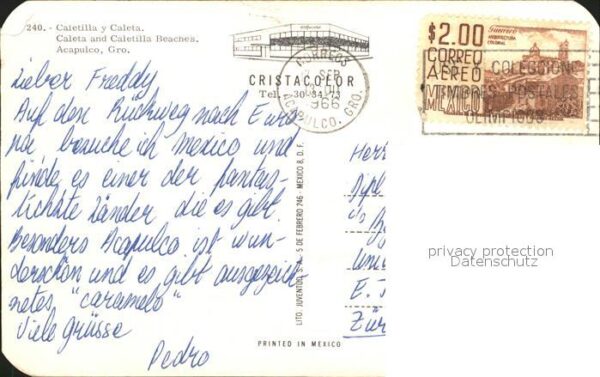 240. - Caletilla y Caleta.
Caleta and Caletilla Beaches.
Acapulco, Gro.
CRISTACOLOR
Tel. 30-84-73
CORREOS
SEP
966
ACAPULCO, GRO.
$2.00
Guerrero
ARQUITECTURA
COLONIAL
CORREO
AEREO
MEXICO
COLECCIONE
TIMBRES POSTALES
OLIMPICOS
Lieber Freddy
Auf den Rückweg nach Euro
pa besuche ich mexico und
finde es einer der fantas-
tichste Länder die es gibt.
Besonders Acapulco ist wun-
derschön und es gibt ausgezeich-
netes "caramelo"
Viele grüsse
Pedro
LITO. JUVENTUD, S. A. - 5 DE FEBRERO 746 - MEXICO 8, D. F.
PRINTED IN MEXICO
Herr
Dipl
c/o
Uni
E. T
Zür
privacy protection
Datenschutz